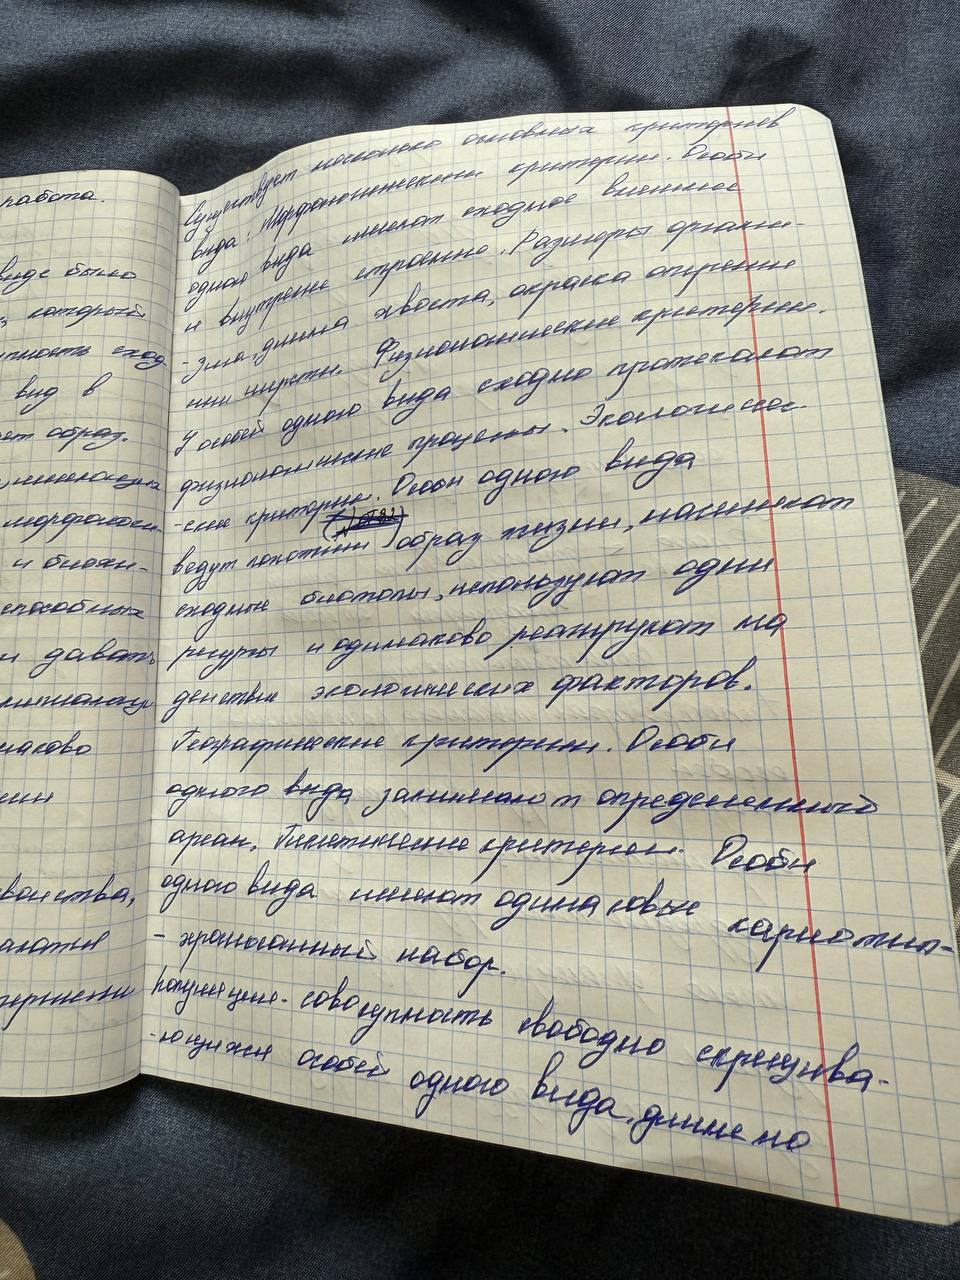 работа.
виде было
, который
сход-
вид в
образ.
морфологи-
и биохи-
способных
и давать
свойства,
Существует несколько основных критериев
вида: Морфологические критерии. Особи
одного вида имеют сходное внешнее
и внутренне строение. Размеры фалан-
-гма, длина хвоста, окраска оперение
или шерсти. Физиологические критерии.
У особей одного вида сходно протекают
физиологические процессы. Экологичес-
-кие критерии. Особи одного вида
ведут похожий образ жизни, населяют
сходные биотопы, используют одни
ресурсы и одинаково реагируют на
действия экологических факторов.
Географические критерии. Особи
одного вида занимают определенный
ареал. Генетические критерии. Особи
одного вида имеют одинаковые кариотип-
- хромосомный набор.
Популяция- совокупность свободно скрещива-
-ющихся особей одного вида, длительно